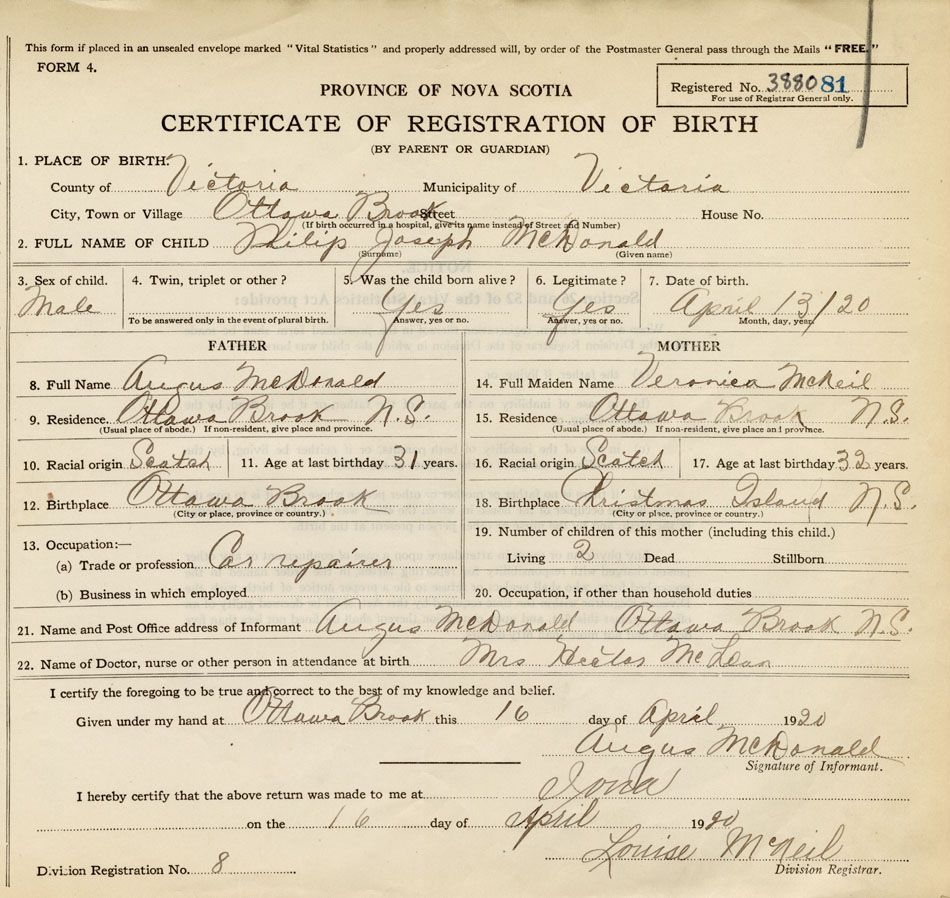 This form if placed in an unsealed envelope marked "Vital Statistics" and properly addressed will, by order of the Postmaster General pass through the Mails "FREE."
FORM 4.
PROVINCE OF NOVA SCOTIA
Registered No. 388081
For use of Registrar General only.
CERTIFICATE OF REGISTRATION OF BIRTH
(BY PARENT OR GUARDIAN)
1. PLACE OF BIRTH:
County of Victoria Municipality of Victoria
City, Town or Village Ottawa Brook Street House No.
(If birth occurred in a hospital, give its name instead of Street and Number)
2. FULL NAME OF CHILD Philip Joseph McDonald
(Surname) (Given name)
3. Sex of child. 4. Twin, triplet or other? 5. Was the child born alive? 6. Legitimate? 7. Date of birth.
Male Yes Yes April 13/20
To be answered only in the event of plural birth. Answer, yes or no. Answer, yes or no. Month, day, year.
FATHER MOTHER
8. Full Name Angus McDonald 14. Full Maiden Name Veronica McNeil
9. Residence. Ottawa Brook N.S. 15. Residence Ottawa Brook N.S.
(Usual place of abode.) If non-resident, give place and province. (Usual place of abode.) If non-resident, give place and province.
10. Racial origin Scotch 11. Age at last birthday 31 years. 16. Racial origin Scotch 17. Age at last birthday 32 years.
12. Birthplace Ottawa Brook 18. Birthplace Christmas Island N.S.
(City or place, province or country.) (City or place, province or country.)
13. Occupation:— 19. Number of children of this mother (including this child.)
(a) Trade or profession Car repairer Living 2 Dead Stillborn
(b) Business in which employed 20. Occupation, if other than household duties
21. Name and Post Office address of Informant Angus McDonald Ottawa Brook N.S.
22. Name of Doctor, nurse or other person in attendance at birth Mrs Hector McLean
I certify the foregoing to be true and correct to the best of my knowledge and belief.
Given under my hand at Ottawa Brook this 16 day of April 1920
Angus McDonald
Signature of Informant.
I hereby certify that the above return was made to me at Iona
on the 16 day of April 1920
Louise McNeil
Division Registration No. 8 Division Registrar.